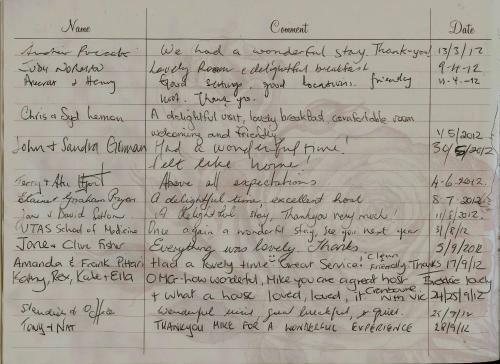 Name Comment Date
We had a wonderful stay. Thank-you! 13/3/12
Judy Norman Lovely Room & delightful breakfast 9-4-12
& Henry Good setting, good location. friendly 11-4-12
host. Thank you.
Chris & Syd Leman A delightful visit, lovely breakfast comfortable room
welcoming and friendly. 4/5/2012
John & Sandra Gilman Had a wonderful time! 30/5/2012
Felt like home!
Terry & Above all expectations 4-6-2012.
Elaine Graham Pryor A delightful time, excellent host 8-7-2012
David A delightful stay, Thankyou very much! 11/8/2012
UTAS School of Medicine Once again a wonderful stay, see you next year 31/8/12
Jane & Clive Fisher Everything was lovely thanks 5/9/2012
Amanda & Frank Had a lovely time Great Service! Clean Friendly. Thanks 17/9/12
Kathy, Rex, Kate & Ella OMG - how wonderful, Mike you are a great host
& what a house loved, loved, it 24/25/9/12
& Wonderful breakfast, & quiet. 25/9/12
Tony & Nat THANKYOU MIKE FOR A WONDERFUL EXPERIENCE 28/9/12